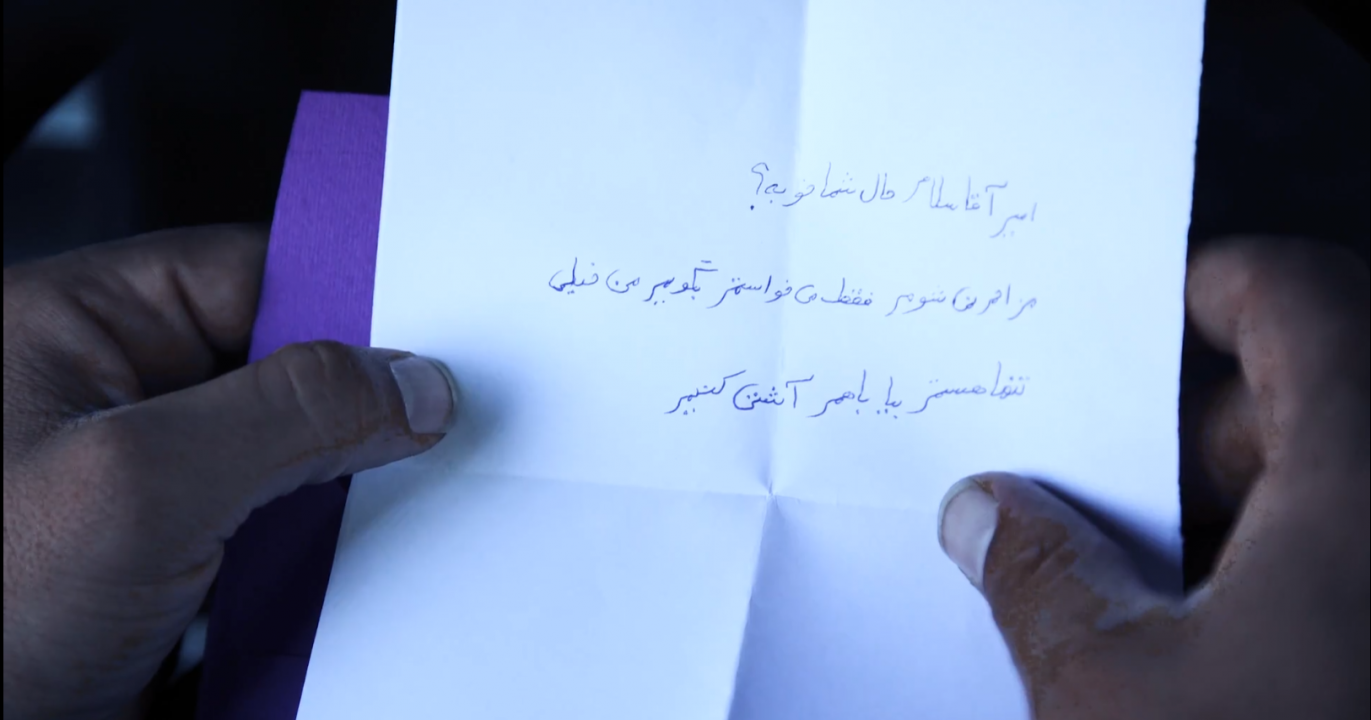 امیر آقا سلام حال شما خوبه؟
مزاحم نمی شوم فقط می خواستم بگویم من خیلی
تنها هستم بیا باهم آشتی کنیم